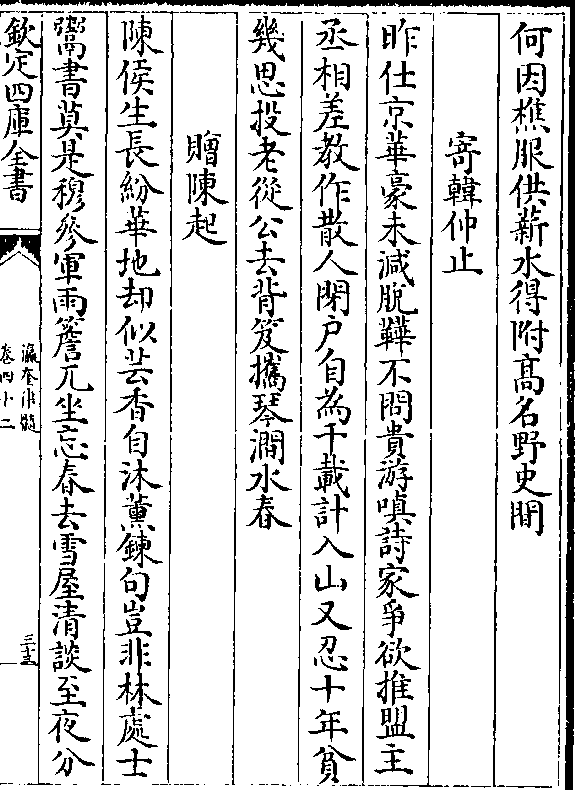 何因樵服供薪水得附高名野史間
寄韓仲止
昨仕京華豪未減脫鞾不問貴游嗔詩家爭欲推盟主
丞相差教作散人閉户自為千載計入山又忍十年貧
幾思投老從公去背笈攜琴澗水春
贈陳起
陳侯生長紛華地却似芸香自沐薰鍊句豈非林處士
鬻書莫是穆參軍雨簷兀坐忘春去雪屋清談至夜分
欽定四庫全書
瀛奎律髓
卷四十二
三十五